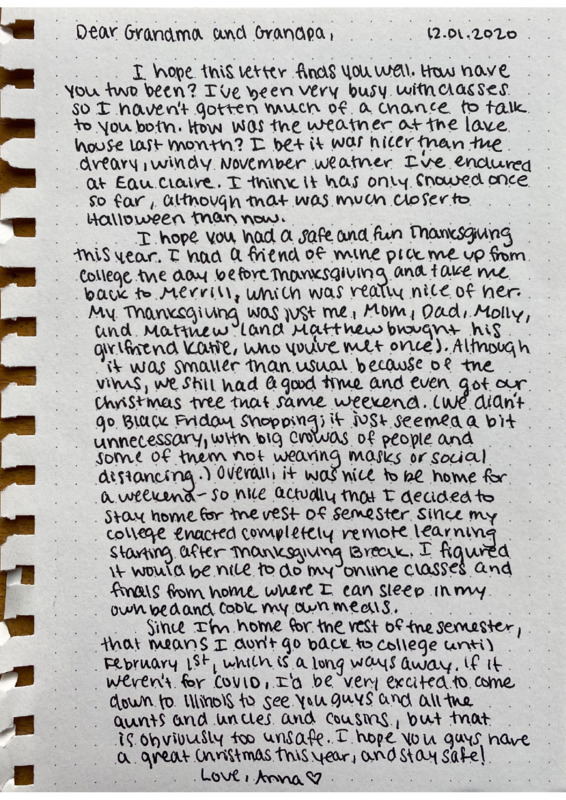 Dear Grandma and Grandpa, 12.01.2020
I hope this letter finds you well. How have
you two been? I've been very busy with classes
so I haven't gotten much of a chance to talk
to you both. How was the weather at the lake
house last month? I bet it was nicer than the
dreary, windy November weather I've endured
at Eau Claire. I think it has only snowed once
so far, although that was much closer to
Halloween than now.
I hope you had a safe and fun Thanksgiving
this year. I had a friend of mine pick me up from
college the day before Thanksgiving and take me
back to Merrill, which was really nice of her.
My Thanksgiving was just me, Mom, Dad, Molly,
and Matthew (and Matthew brought his
girlfriend Katie, who you've met once). Although
it was smaller than usual because of the
virus, we still had a good time and even got our
Christmas tree that same weekend. (We didn't
go Black Friday shopping; it just seemed a bit
unnecessary, with big crowds of people and
some of them not wearing masks or social
distancing.) Overall, it was nice to be home for
a weekend - so nice actually that I decided to
stay home for the rest of semester since my
college enacted completely remote learning
starting after Thanksgiving Break. I figured
it would be nice to do my online classes and
finals from home where I can sleep in my
own bed and cook my own meals.
Since I'm home for the rest of the semester,
that means I don't go back to college until
February 1st, which is a long ways away. If it
weren't for COVID, I'd be very excited to come
down to Illinois to see you guys and all the
aunts and uncles and cousins, but that
is obviously too unsafe. I hope you guys have
a great Christmas this year, and stay safe!
Love, Anna ♡